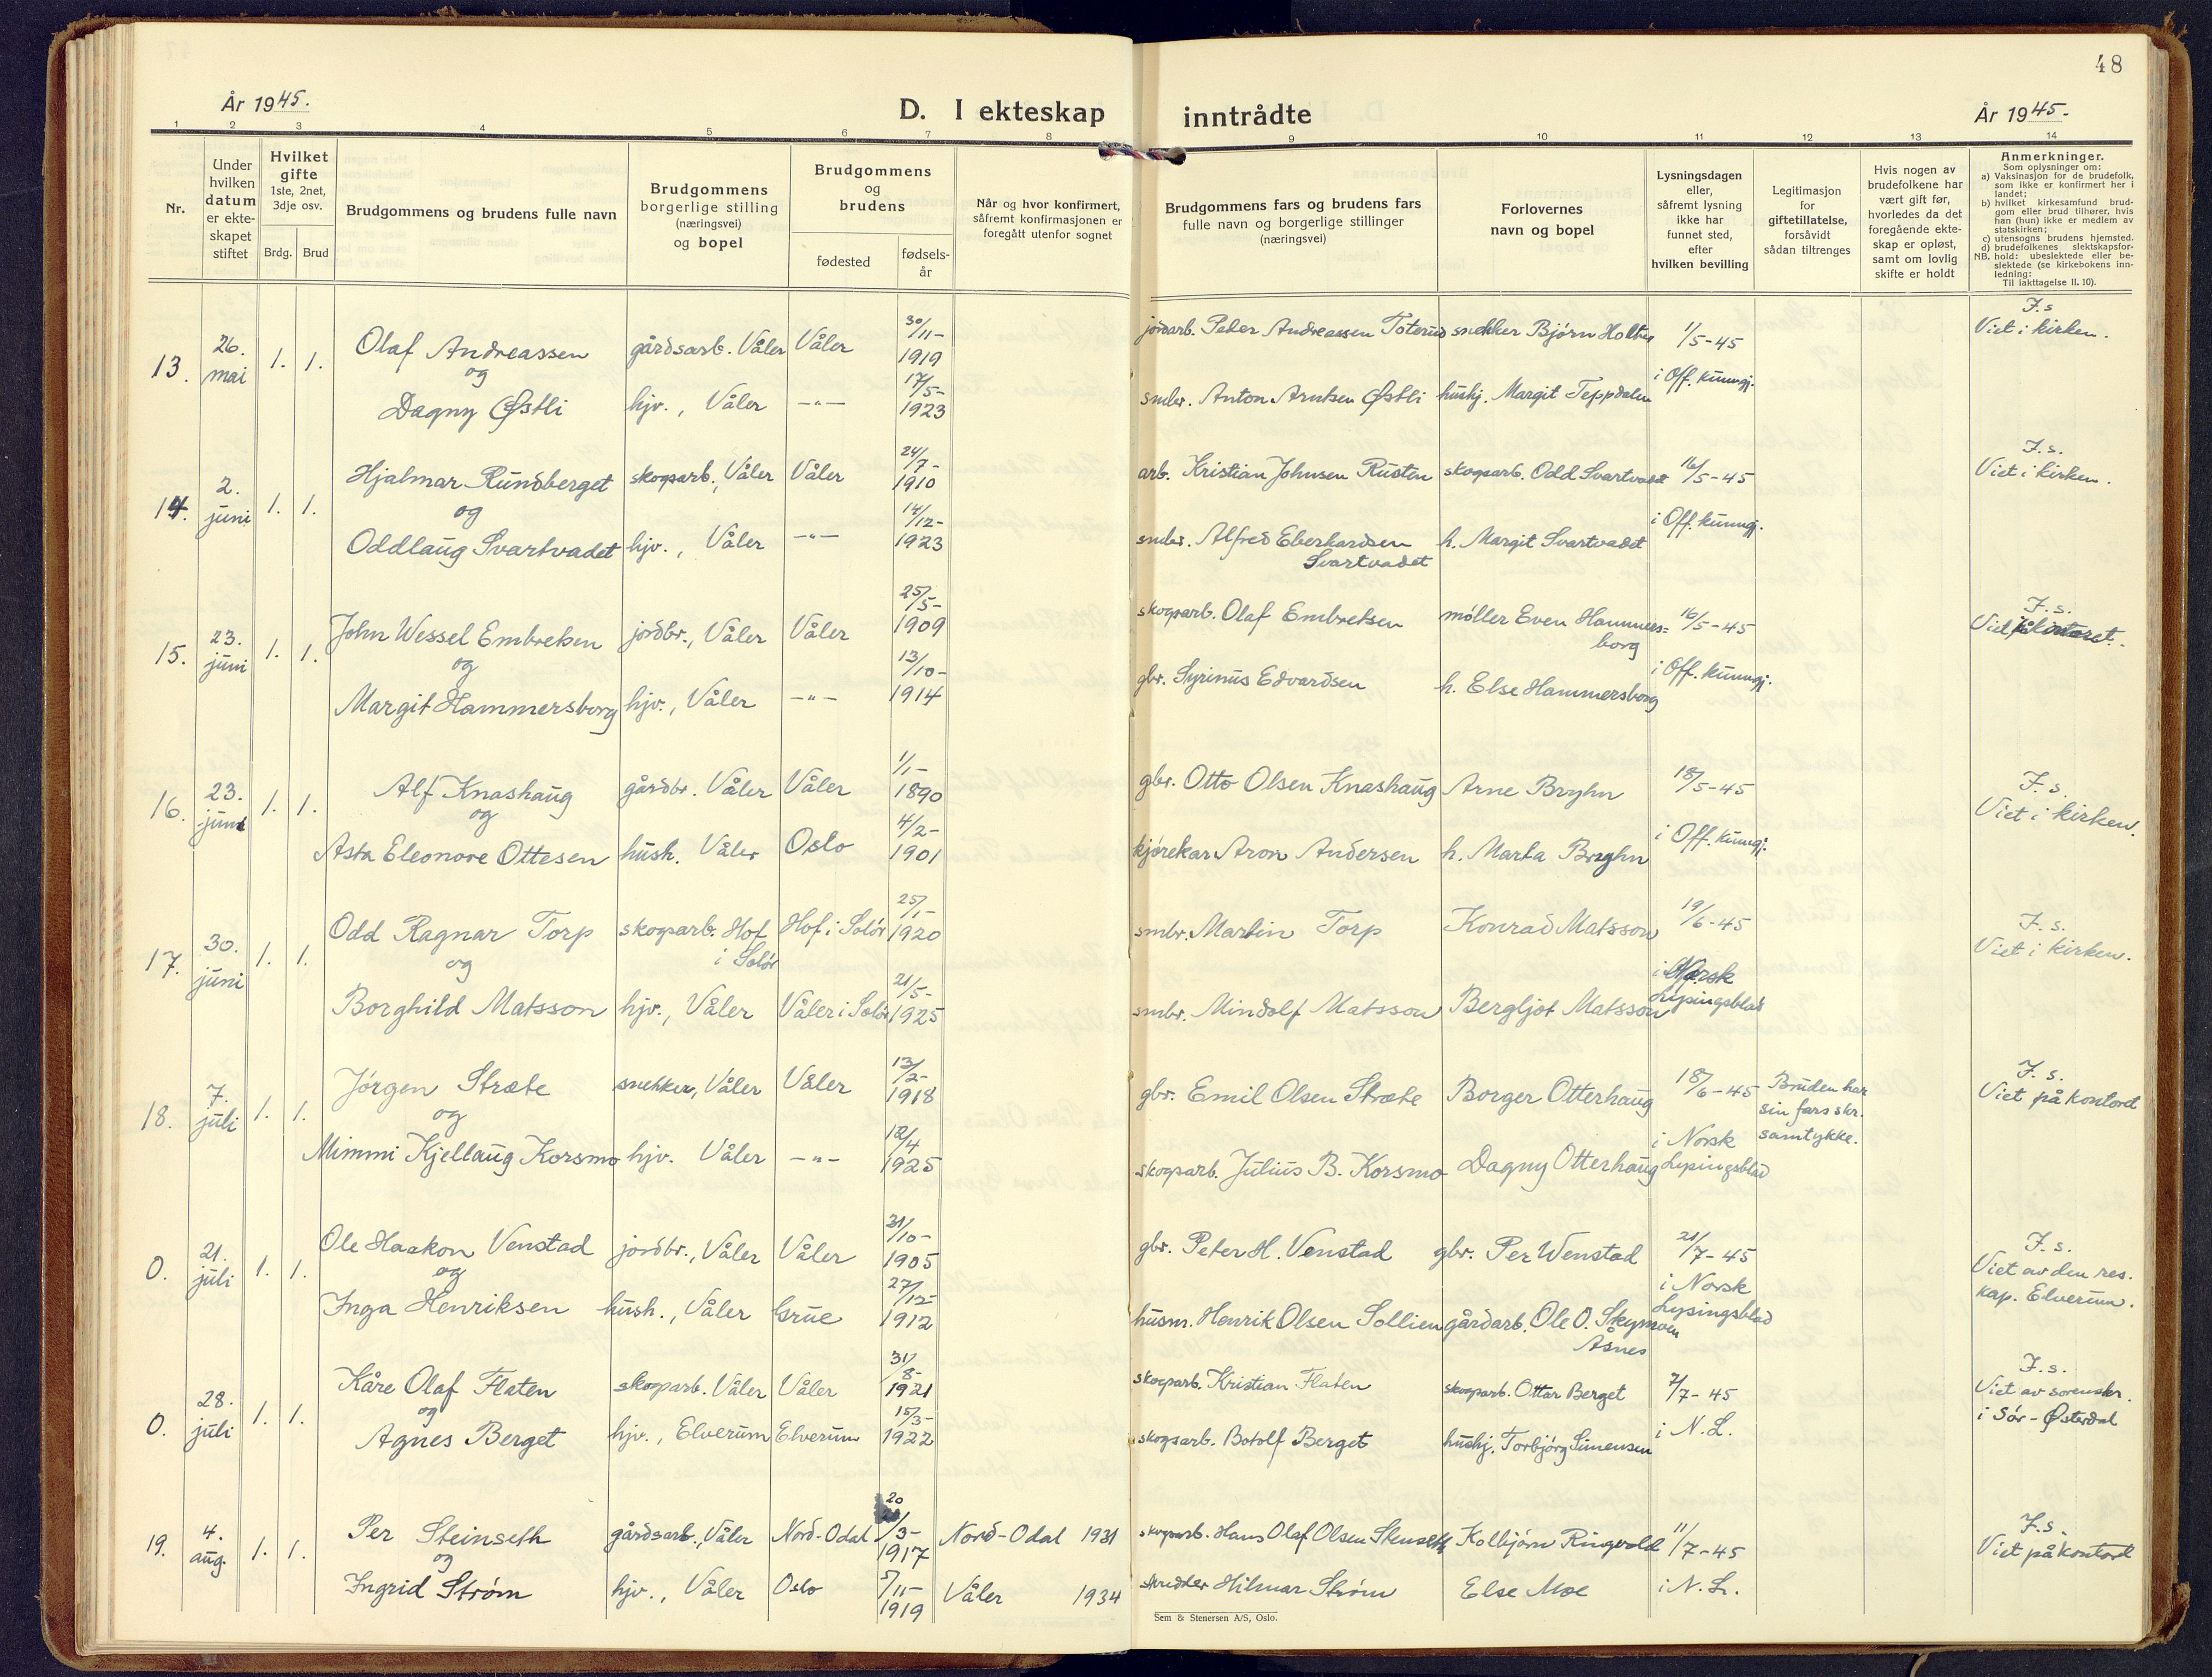 48
År 1945.
D. I ekteskap inntrådte
År 1945.
1 2 3 4 5 6 7 8 9 10 11 12 13 14
Nr.
Under
hvilken
datum
er ekte-
skapet
stiftet
Hvilket
gifte
1ste, 2net,
3dje osv.
Brdg. Brud
Brudgommens og brudens fulle navn
Brudgommens
borgerlige stilling
(næringsvei)
og bopel
Brudgommens
og
brudens
fødested
fødsels-
år
Når og hvor konfirmert,
såfremt konfirmasjonen er
foregått utenfor sognet
Brudgommens fars og brudens fars
fulle navn og borgerlige stillinger
(næringsvei)
Forlovernes
navn og bopel
Lysningsdagen
eller,
såfremt lysning
ikke har
funnet sted,
efter
hvilken bevilling
Legitimasjon
for
giftetillatelse,
forsåvidt
sådan tiltrenges
Hvis nogen av
brudefolkene har
vært gift før,
hvorledes da det
foregående ekte-
skap er opløst,
samt om lovlig
skifte er holdt
Anmerkninger.
Som oplysninger om:
a) Vaksinasjon for de brudefolk,
som ikke er konfirmert her i
landet;
b) hvilket kirkesamfund brud-
gom eller brud tilhører, hvis
han (hun) ikke er medlem av
statskirken;
c) utensogns brudens hjemsted.
d) brudefolkenes slektskapsfor-
NB. hold: ubeslektede eller be-
slektede (se kirkebokens inn-
ledning:
Til iakttagelse II. 10).
13. 26. mai 1. 1. Olaf Andreassen gårdsarb. Våler Våler 30/11-1919 jordarb. Peter Andreassen Toterud snekker Bjørn Holter 1/5-45 F.s Viet i kirken.
og
Dagny Østli hjv., Våler -"- 17/5-1923 smbr. Anton Arntsen Østli hushj. Margit Teppdalen i Off. kunngj.
14. 2. juni 1. 1. Hjalmar Rundberget skogsarb., Våler Våler 24/7-1910 arb. Kristian Johnsen Rusten skogsarb. Odd Svartvadet 16/5-45 F.s. Viet i kirken.
og
Oddlaug Svartvadet hjv., Våler -"- 14/12-1923 smbr. Alfred Eberhardsen Svartvadet h. Margit Svartvadet i Off. kunngj.
15. 23. juni 1. 1. John Wessel Embretsen jordbr., Våler Våler 25/5-1909 skogsarb. Olaf Embretsen møller Even Hammers=borg 16/5-45 F.s. Viet
og
Margit Hammersborg hjv., Våler -"- 13/10-1914 gbr. Syrinus Edvardsen h. Else Hammersborg i Off. kunngj.
16. 23. juni 1. 1. Alf Knashaug gårdbr. Våler Våler 1/1-1890 gbr. Otto Olsen Knashaug Arne Bryhn 18/5-45 F.s. Viet i kirken.
og
Asta Eleonore Ottesen hush. Våler Oslo 4/2-1901 kjørekar Aron Andersen h. Marta Bryhn i Off. kunngj.
17. 30. juni 1. 1. Odd Ragnar Torp skogsarb. Hof i Solør Hof i Solør 25/1-1920 smbr. Martin Torp Konrad Matsson 19/6-45 F.s. Viet i kirken.
og
Borghild Matsson hjv., Våler Våler i Solør 21/5-1925 smbr. Mindolf Matsson Bergljot Matsson i Norsk Lysingsblad
18. 7. juli 1. 1. Jørgen Stræte snekker, Våler Våler 13/2-1918 gbr. Emil Olsen Stræte Borger Otterhaug 18/6-45 Bruden har sin fars skr. samtykke. F.s. Viet på kontoret
og
Mimmi Kjellaug Korsmo hjv. Våler -"- 12/4 1925 skogsarb. Julius B. Korsmo Dagny Otterhaug i Norsk Lysingsblad
0. 21. juli 1. 1. Ole Haakon Venstad jordbr., Våler Våler 31/10-1905 gbr. Peter H. Venstad gbr. Per Wenstad 21/7-45 F.s. Viet av den res. kap. Elverum.
og
Inga Henriksen hush., Våler Grue 27/12-1912 husm. Henrik Olsen Sollien gårdarb. Ole O. Skymoen Åsnes i Norsk Lysingsblad
0. 28. juli 1. 1. Kåre Olaf Flaten skogsarb. Våler Våler 31/8-1921 skogsarb. Kristian Flaten skogsarb. Ottar Berget 7/7-45 F.s. Viet av sorenskr. i Sør-Østerdal
og
Agnes Berget hjv., Elverum Elverum 15/3-1922 skogsarb. Botolf Berget hushj. Torbjørg Simensen i N.L.
19. 4. aug. 1. 1. Per Steinseth gårdsarb., Våler Nord-Odal 20/3-1917 Nord-Odal 1931 skogsarb. Hans Olaf Olsen Stenseth Kolbjørn Ringvold 11/7-45 F.s. Viet på kontoret
og
Ingrid Strøm hjv., Våler Oslo 5/11-1919 Våler 1934 skredder Hilmar Strøm Else Moe i N.L.
Sem & Stenersen A/S, Oslo.